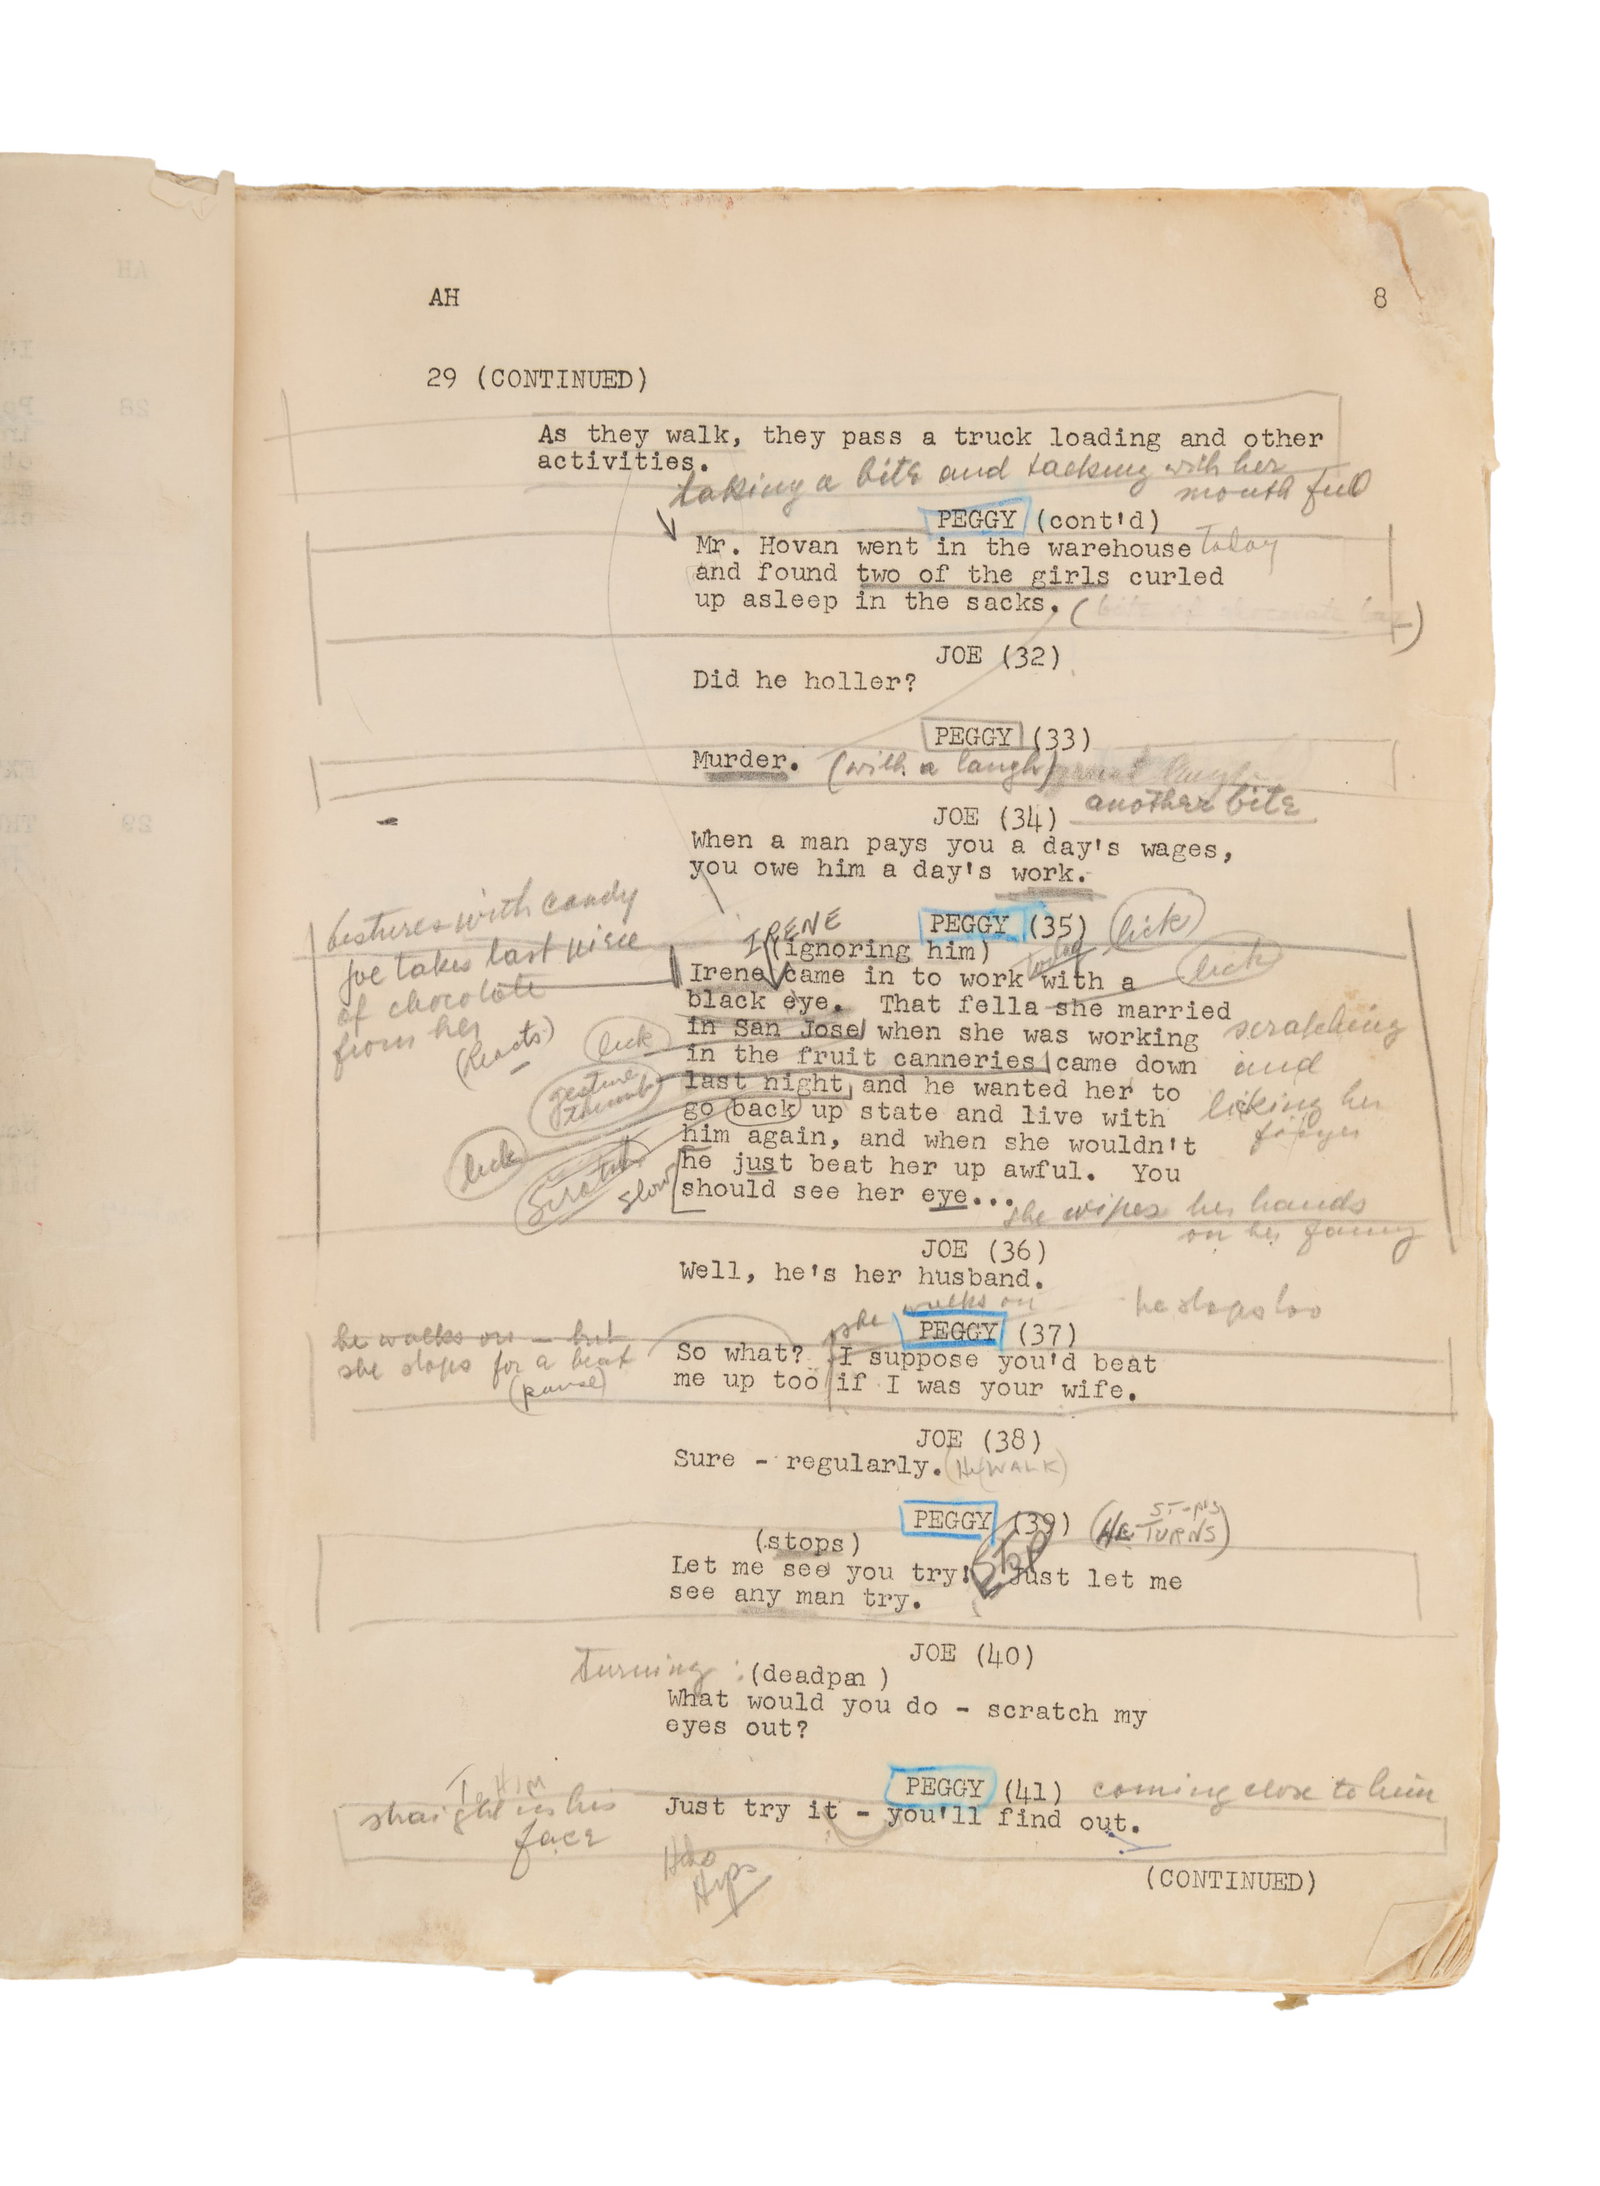 AH
8
29 (CONTINUED)
As they walk, they pass a truck loading and other
activities.
taking a bite and talking with her
mouth full
PEGGY (cont'd)
Mr. Hovan went in the warehouse today
and found two of the girls curled
up asleep in the sacks. (
)
JOE (32)
Did he holler?
PEGGY (33)
Murder. (with a laugh)
another bite
JOE (34)
When a man pays you a day's wages,
you owe him a day's work.
Gestures with candy
Joe takes last piece
of chocolate
from her
(Reacts)
IRENE
PEGGY (35) lick
(ignoring him)
today
lick
Irene came in to work with a
black eye. That fella she married
in San Jose when she was working
in the fruit canneries came down
last night and he wanted her to
go back up state and live with
him again, and when she wouldn't
he just beat her up awful. You
should see her eye...
lick
gesture
thumb
lick
Scratch
slow
scratching
and
licking her
finger
she wipes her hands
on her fanny
JOE (36)
Well, he's her husband.
she walks on
he stops too
he walks on - but
she stops for a beat
(pause)
PEGGY (37)
So what? I suppose you'd beat
me up too if I was your wife.
JOE (38)
Sure - regularly. (He WALK)
PEGGY (39) (HE STOPS
TURNS)
(stops)
STOP
Let me see you try! Just let me
see any man try.
JOE (40)
Turning (deadpan )
What would you do - scratch my
eyes out?
To HIM
straight in his
face
PEGGY (41) coming close to him
Just try it - you'll find out.
Hips
(CONTINUED)